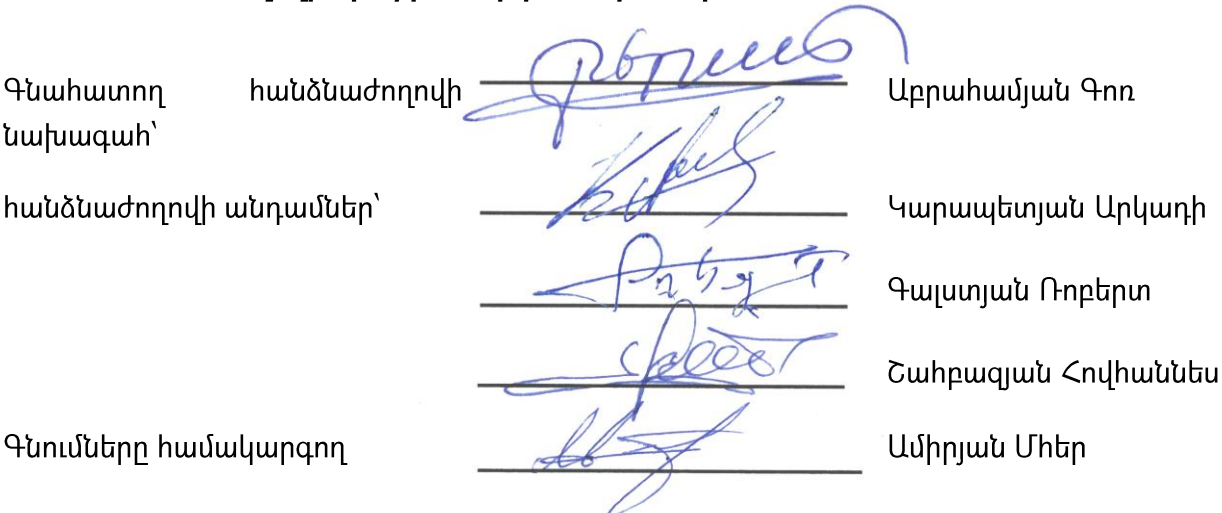 Գնահատող հանձնաժողովի Աբրահամյան Գոռ
նախագահ՝
հանձնաժողովի անդամներ՝ Կարապետյան Արկադի
Գալստյան Ռոբերտ
Շահբազյան Հովհաննես
Գնումները համակարգող Ամիրյան Մհեր